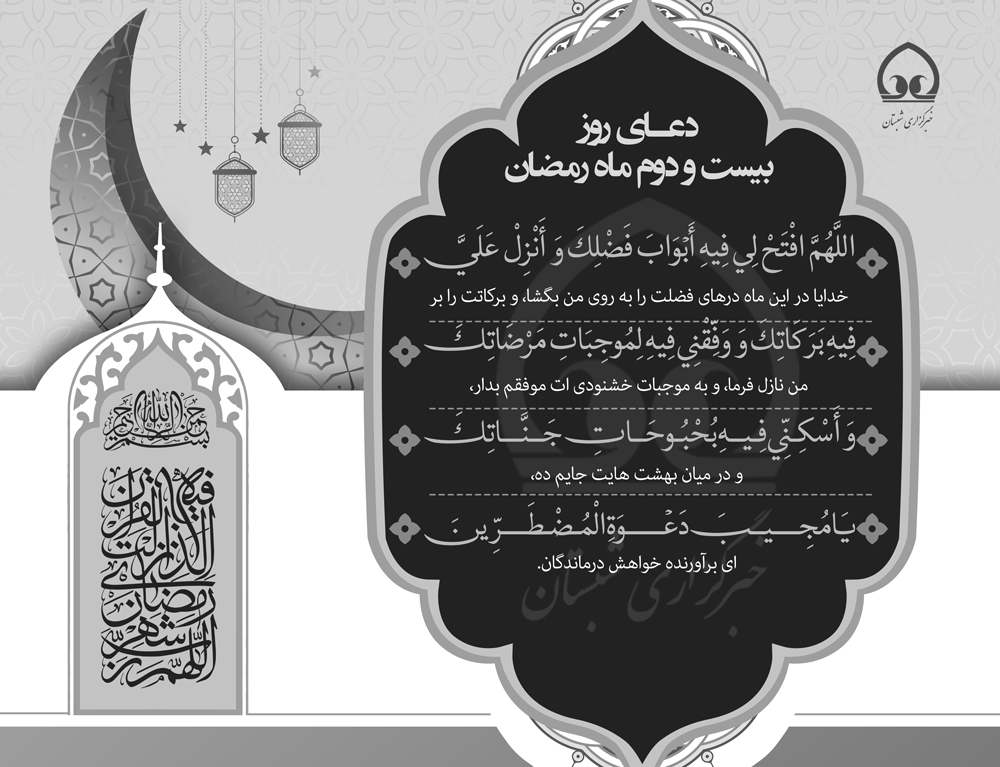 خبرگزاری شبستان
دعای روز
بیست و دوم ماه رمضان
اللَّهُمَّ افْتَحْ لِي فِيهِ أَبْوَابَ فَضْلِكَ وَ أَنْزِلْ عَلَيَّ
خدایا در این ماه درهای فضلت را به روی من بگشا، و برکاتت را بر
فِيهِ بَرَكَاتِكَ وَ وَفِّقْنِي فِيهِ لِمُوجِبَاتِ مَرْضَاتِكَ
من نازل فرما، و به موجبات خشنودی ات موفقم بدار،
وَ أَسْكِنِّي فِيهِ بُحْبُوحَاتِ جَنَّاتِكَ
و در میان بهشت هایت جایم ده،
يَا مُجِيبَ دَعْوَةِ الْمُضْطَرِّينَ
ای برآورنده خواهش درماندگان.
خبرگزاری شبستان
بسم الله الرحمن الرحیم
اللهم رب شهر رمضان الذی انزلت فیه القرآن